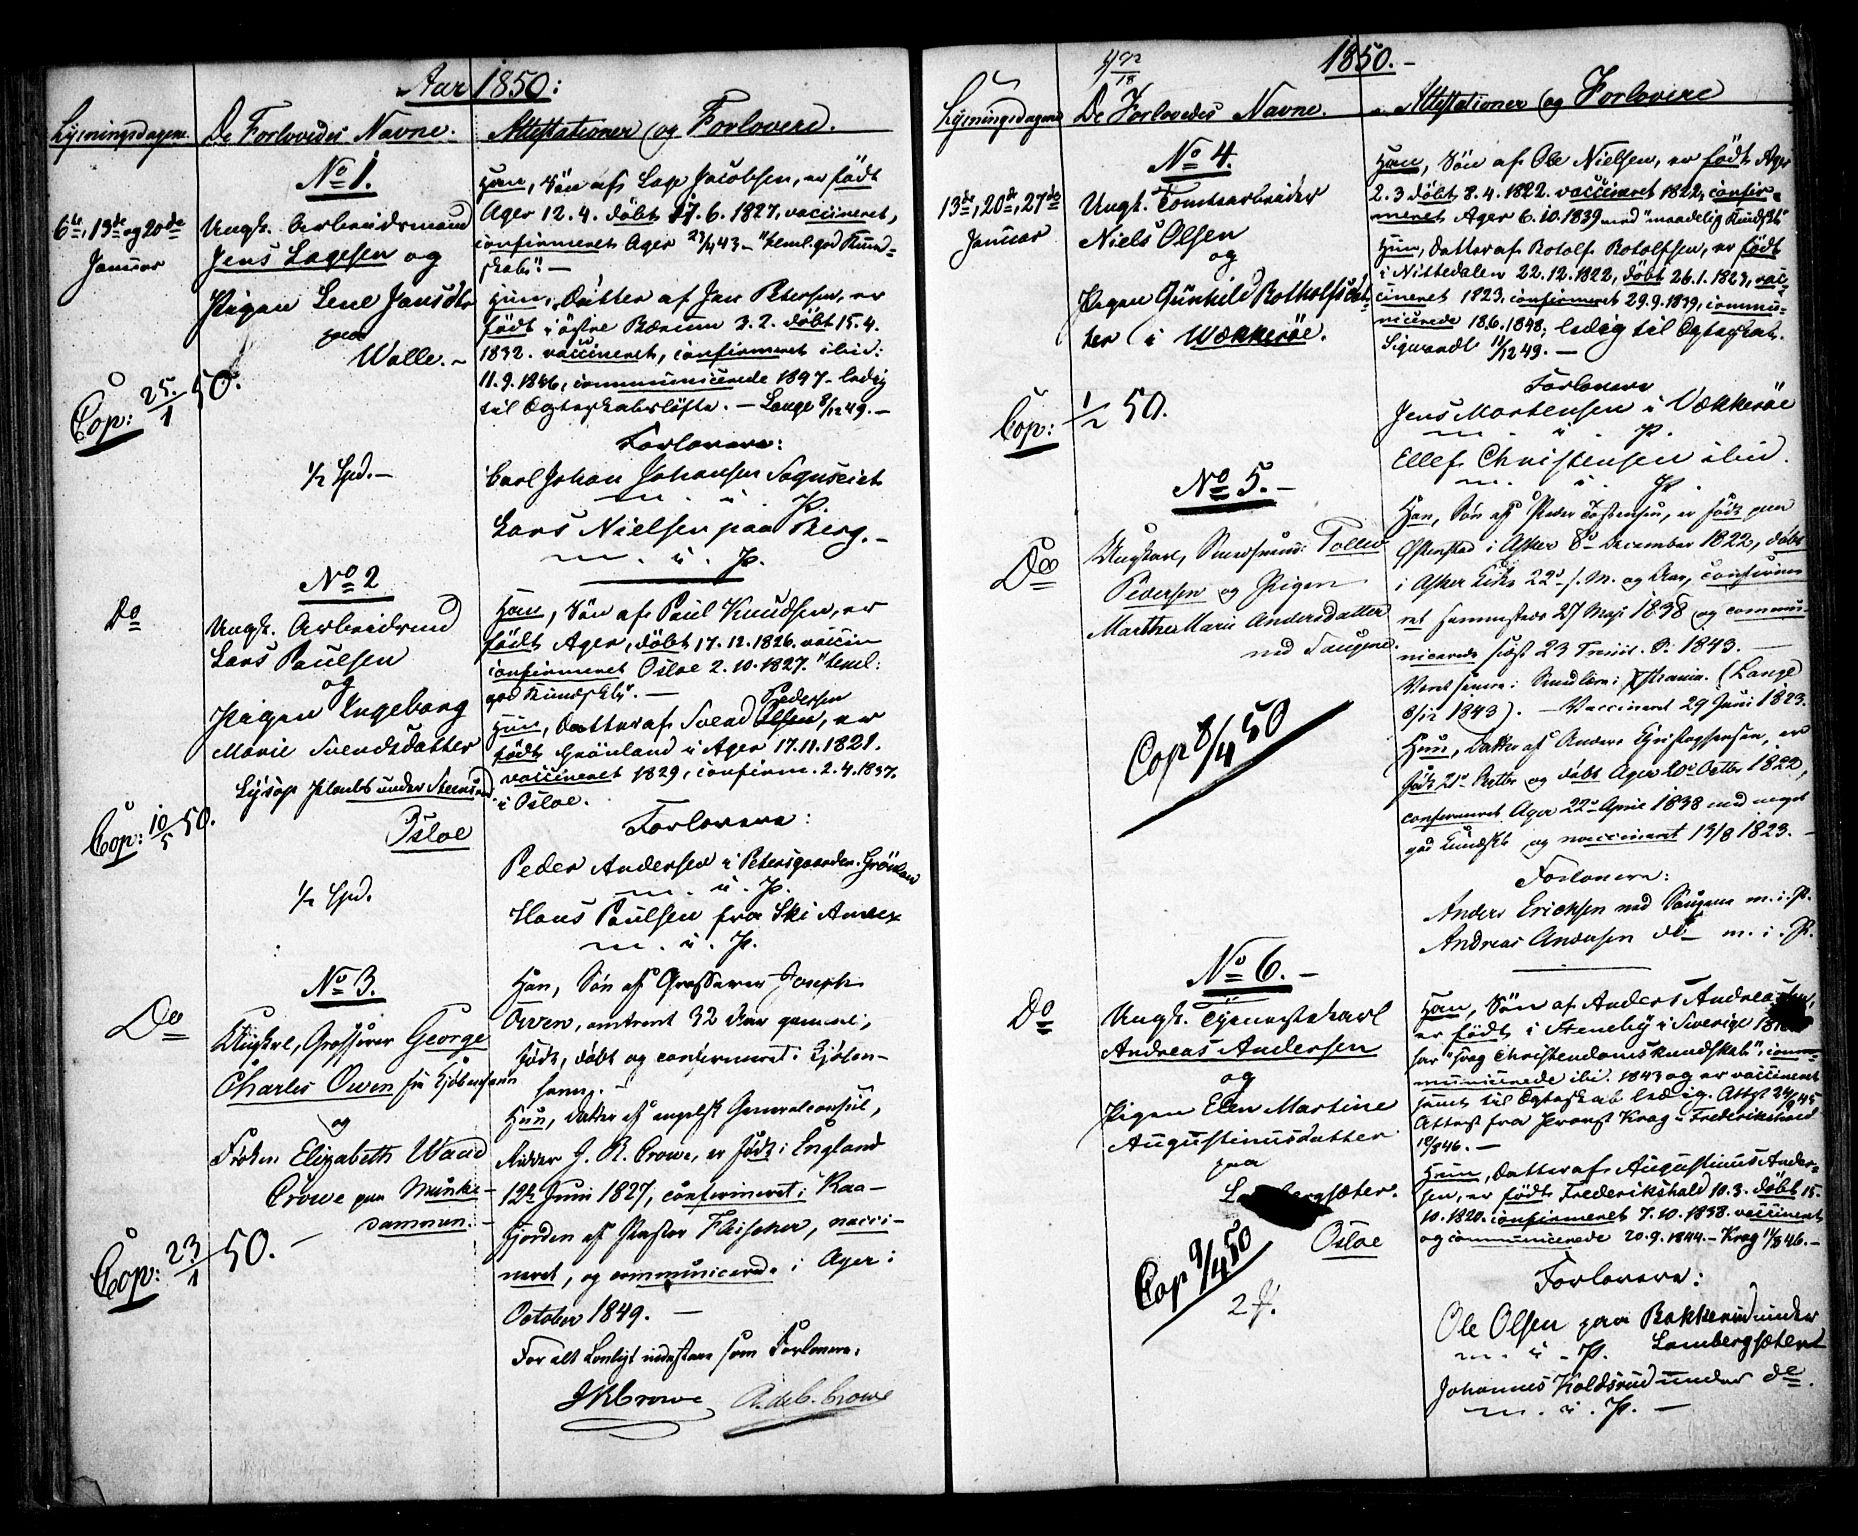 Aar 1850:
Lysningsdagene
De Forlovedes Navne.
Attestationer og Forlovere.
6te, 13de og 20de
Januar
No 1.
Ungk. Arbeidsmand
Jens Lagesen og
Pigen Lene Jansdtr
paa
Wolle. -
Cop: 25./1 50.
1/2 Spd. -
Han, Søn af Lage Jacobsen, er født
Ager 12. 4. døbt 17. 6. 1827, vaccineret,
confirmeret Ager 23/4 43 - "temel. god Kund-
skab". -
Hun, Datter af Jan Petersen, er
født i østre Bærum 3. 2. døbt 15. 4.
1832. vaccineret, confirmeret ibid:
11. 9. 1846, communicerede 1847 - ledig
til Ægteskabsløfte. - Lange 8/12 49. -
Forlovere:
Carl Johan Johansen
m. i. P.
Lars Nielsen paa Berg. -
m. i. P.
Do
No 2
Ungk. Arbeidsmd
Lars Paulsen
og
Pigen Ingeborg
Marie Svendsdatter
under
Osloe
Cop: 10/5 50.
1/2 Spd.
Han, Søn af Paul Knudsen, er
født Ager, døbt 17. 12. 1826. vaccin
confirmeret Osloe 2. 10. 1827. "temel:
god Kundskb". -
Pedersen
Hun, Datter af Svend Olsen, er
født Grönland i Ager 17. 11. 1821.
vaccineret 1829, confirm. 2. 4. 1837.
i Osloe.
Forlovere:
Peder Andersen i Petersgaarden. Grönland
m. i. P.
Hans Paulsen fra Ski Annex
m. i. P.
Do
No 3.
Ungkel, Grosserer George
Charles Owen fra Kjöbenhavn
og
Frøken Elizabeth Waud
Crowe paa Munke-
dammen. -
Cop: 23/1 50. -
Han, Søn af Grosserer Joseph
Owen, omtrent 32 Aar gammel,
født, døbt og confirmeret i Kjöben-
havn. -
Hun, Datter af engelsk Generalconsul,
Ridder J. R. Crowe, er født i England
12te Juni 1827, confirmeret i Kaa-
fjorden af Pastor Fleischer, vacci-
neret, og communicerede i Ager i
October 1849. -
For alt Lovligt indestaae som Forlovere,
JRCrowe
1850. -
Lysningsdagene
De Forlovedes Navne.
Attestationer og Forlovere
13de, 20de, 27de
Januar
No 4.
Ungk. Tomtearbeider
Niels Olsen
og
Pigen Gunhild Botholfsdat-
ter i Wækkerøe.
Cop: 1/2 50.
Han, Søn af Ole Nielsen, er født Ager
2. 3 døbt 8. 4. 1822. vaccineret 1822, confir-
meret Ager 6. 10. 1839 med "maadelig Kundskb"
Hun, Datter af Botolf Botolfsen, er født
i Nittedalen 22. 12. 1822, døbt 26. 1. 1823, vac-
cineret 1823, confirmeret 29. 9. 1839, commu-
nicerede 18. 6. 1848, ledig til Ægteskab.
Sigwardt 11/12 49. -
Forlovere
Jens Mortensen i Vækkerøe
m. i. P.
Ellef Christensen ibid.
m. i. P.
Do
No 5. -
Ungkarl, Tollev
Pedersen og Pigen
Marthe Marie Andersdatter
ved Saugene.
Cop 8/4 50
Han, Søn af Peder Tostensen, er født paa
i Asker 8de December 1822, døbt
i Asker Kirke 22de s. M. og Aar, confirme-
ret sammesteds 27 Mai 1838 og commu-
nicerede sidst 23 Trinit. S. 1843. -
(Lange
8/12 1843). - Vaccineret 29 Juni 1823.
Hun, Datter af Anders Christophersen, er
født 21de og døbt Ager 20de Octbr 1822,
confirmeret Ager 22de April 1838 med meget
god Kundskb og vaccineret 13/8 1823. -
Forlovere:
Anders Erichsen ved Saugene m. i. P.
Andreas Andersen do - m. i. P.
Do
No 6. -
Ungk. Tjenestekarl
Andreas Andersen
og
Pigen Elen Martine
Augustinusdatter
paa
Osloe
Cop 9/4 50
Han, Søn af Anders Andreassen,
er født i Steneby i Sverige
har "svag Christendomskundskab", comm-
municerede ibd. 1843 og er vaccineret
samt til Ægteskab ledig.
Attest fra Provst Krag i Frederikshald
Hun, Datter af Augustinus Ander-
sen, er født Frederikshald 10. 3. døbt 15.
10. 1820. confirmeret 7. 10. 1838. vaccineret
og communicerede 20. 9. 1844. - Krag 11/8 46. -
Forlovere:
Ole Olsen paa Bakkerud under
m. i. P. Lambergsæteret
Johannes Koldsrud under do.
m. i. P. -